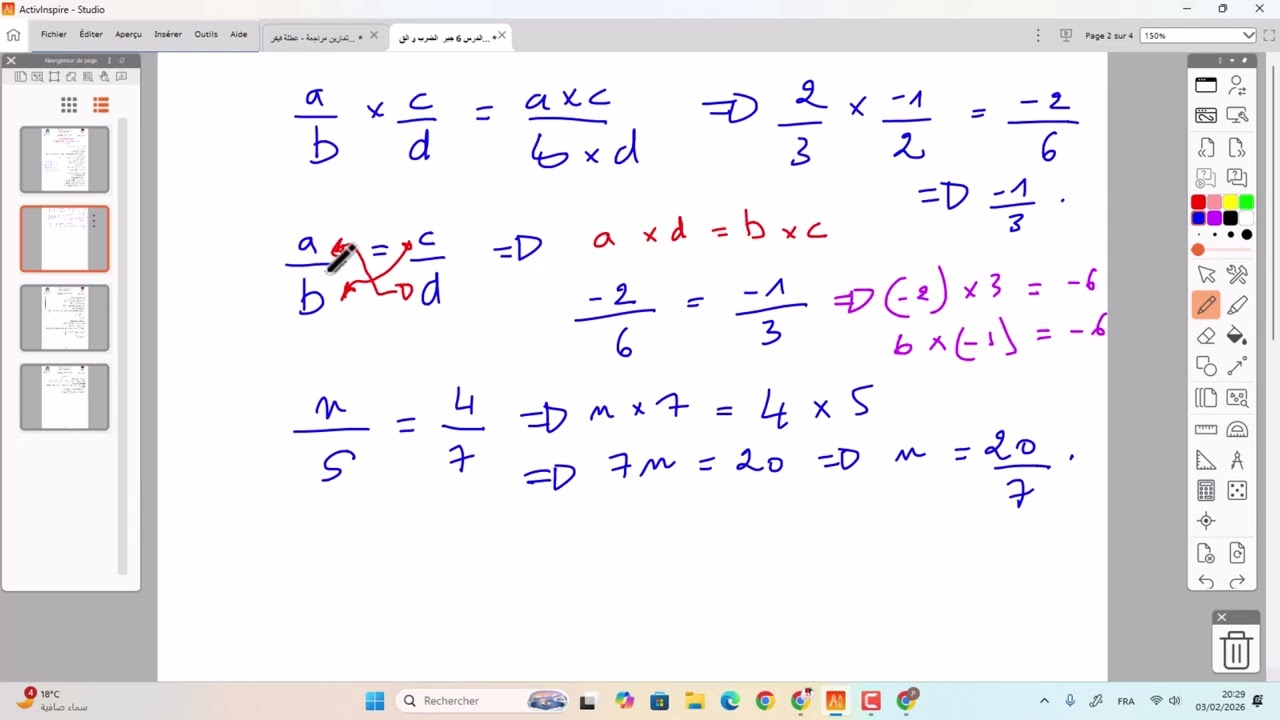 ActivInspire - Studio
Fichier Éditer Aperçu Insérer Outils Aide
تمارين مراجعة - عطلة فيفر... *
الدرس 6 جبر الضرب و الق... *
Page 2 sur 4
150%
Navigateur de page
a/b × c/d = a×c/b×d =D 2/3 × -1/2 = -2/6
=D -1/3 .
a/b = c/d =D a × d = b × c
-2/6 = -1/3 =D (-2) × 3 = -6
6 × (-1) = -6
n/5 = 4/7 =D n × 7 = 4 × 5
=D 7n = 20 =D n = 20/7 .
4
18°C
سماء صافية
Rechercher
FRA
20:29
03/02/2026